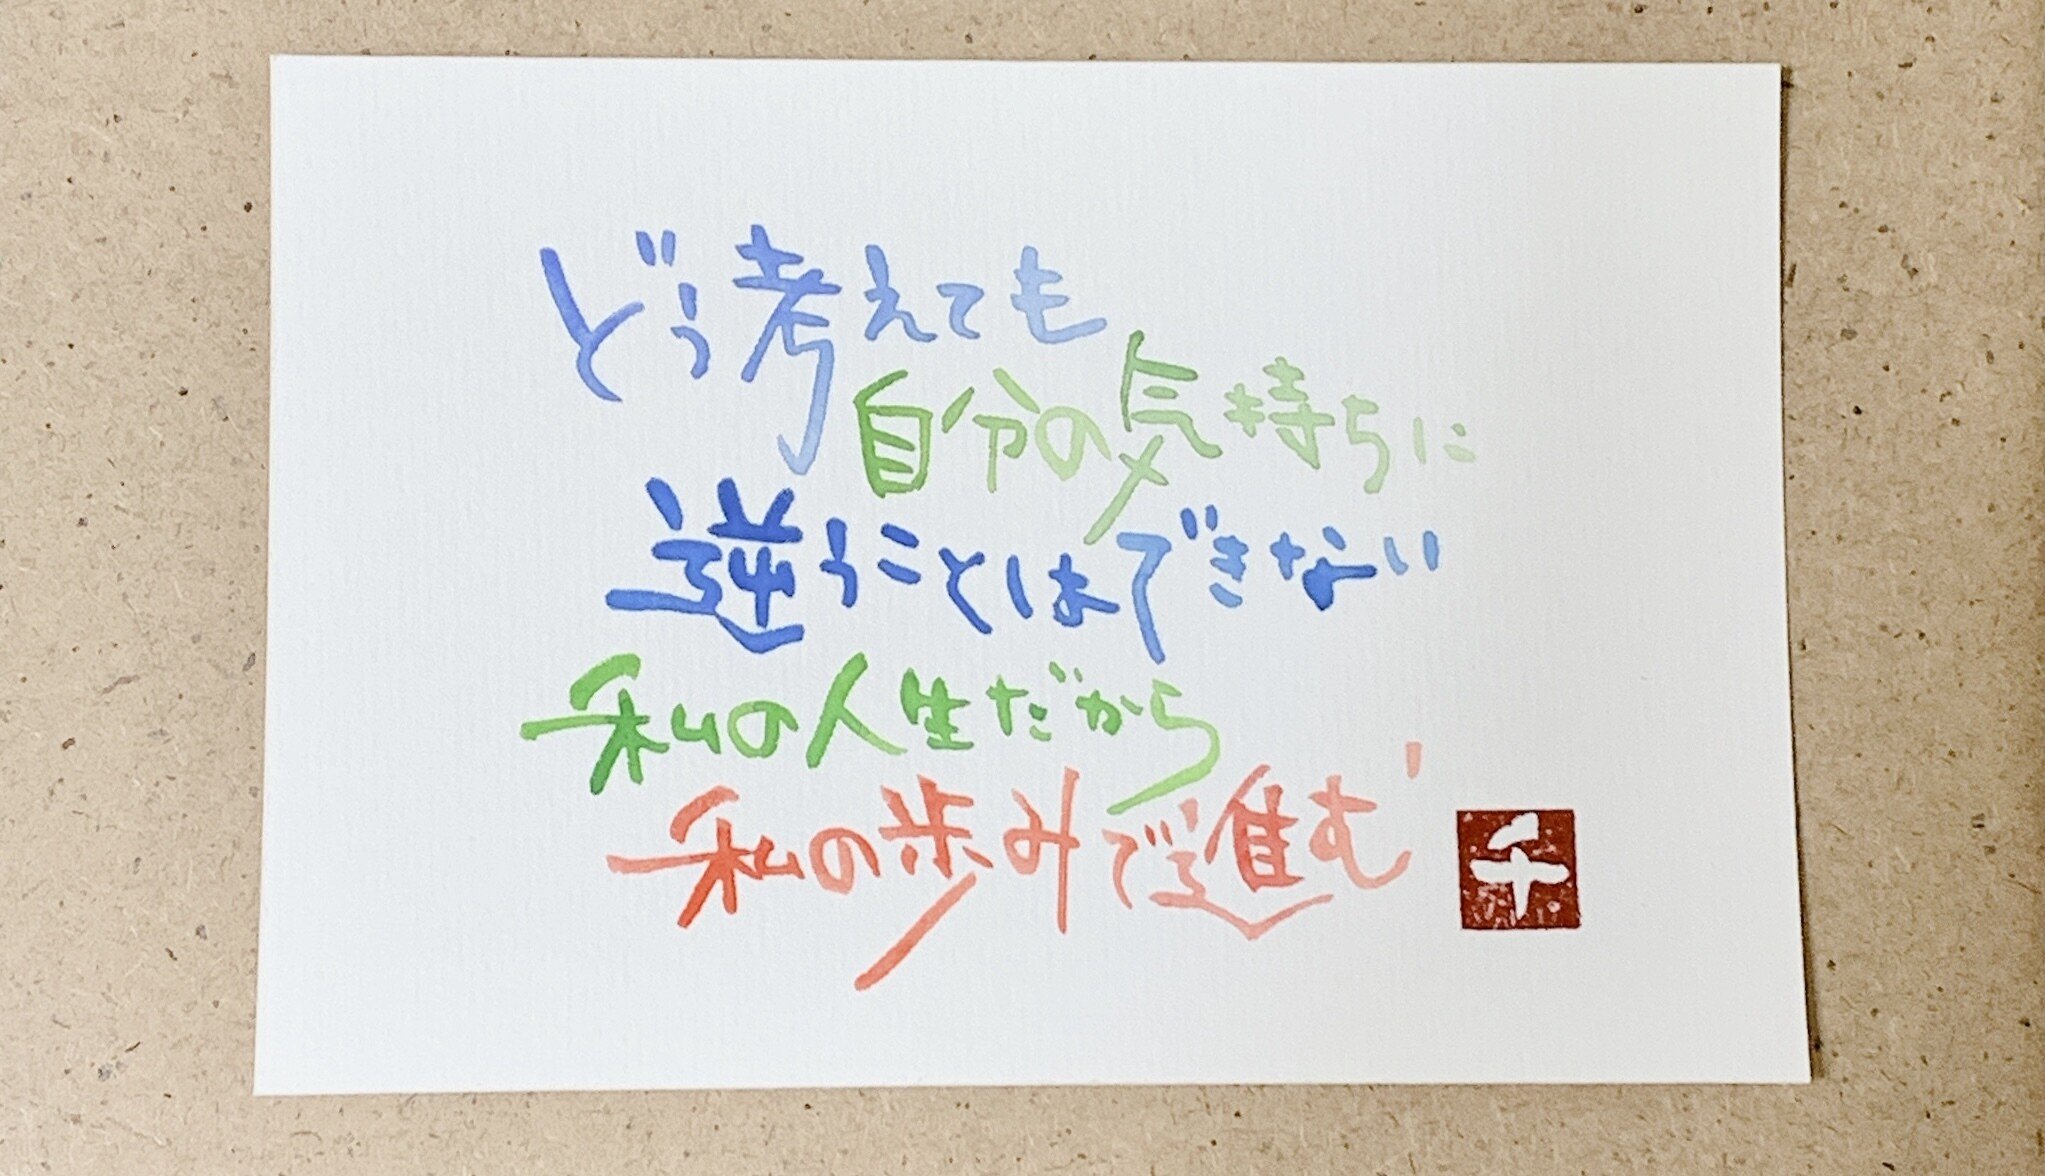 どう考えても
自分の気持ちに
逆うことはできない
私の人生だから
私の歩みで進む
千